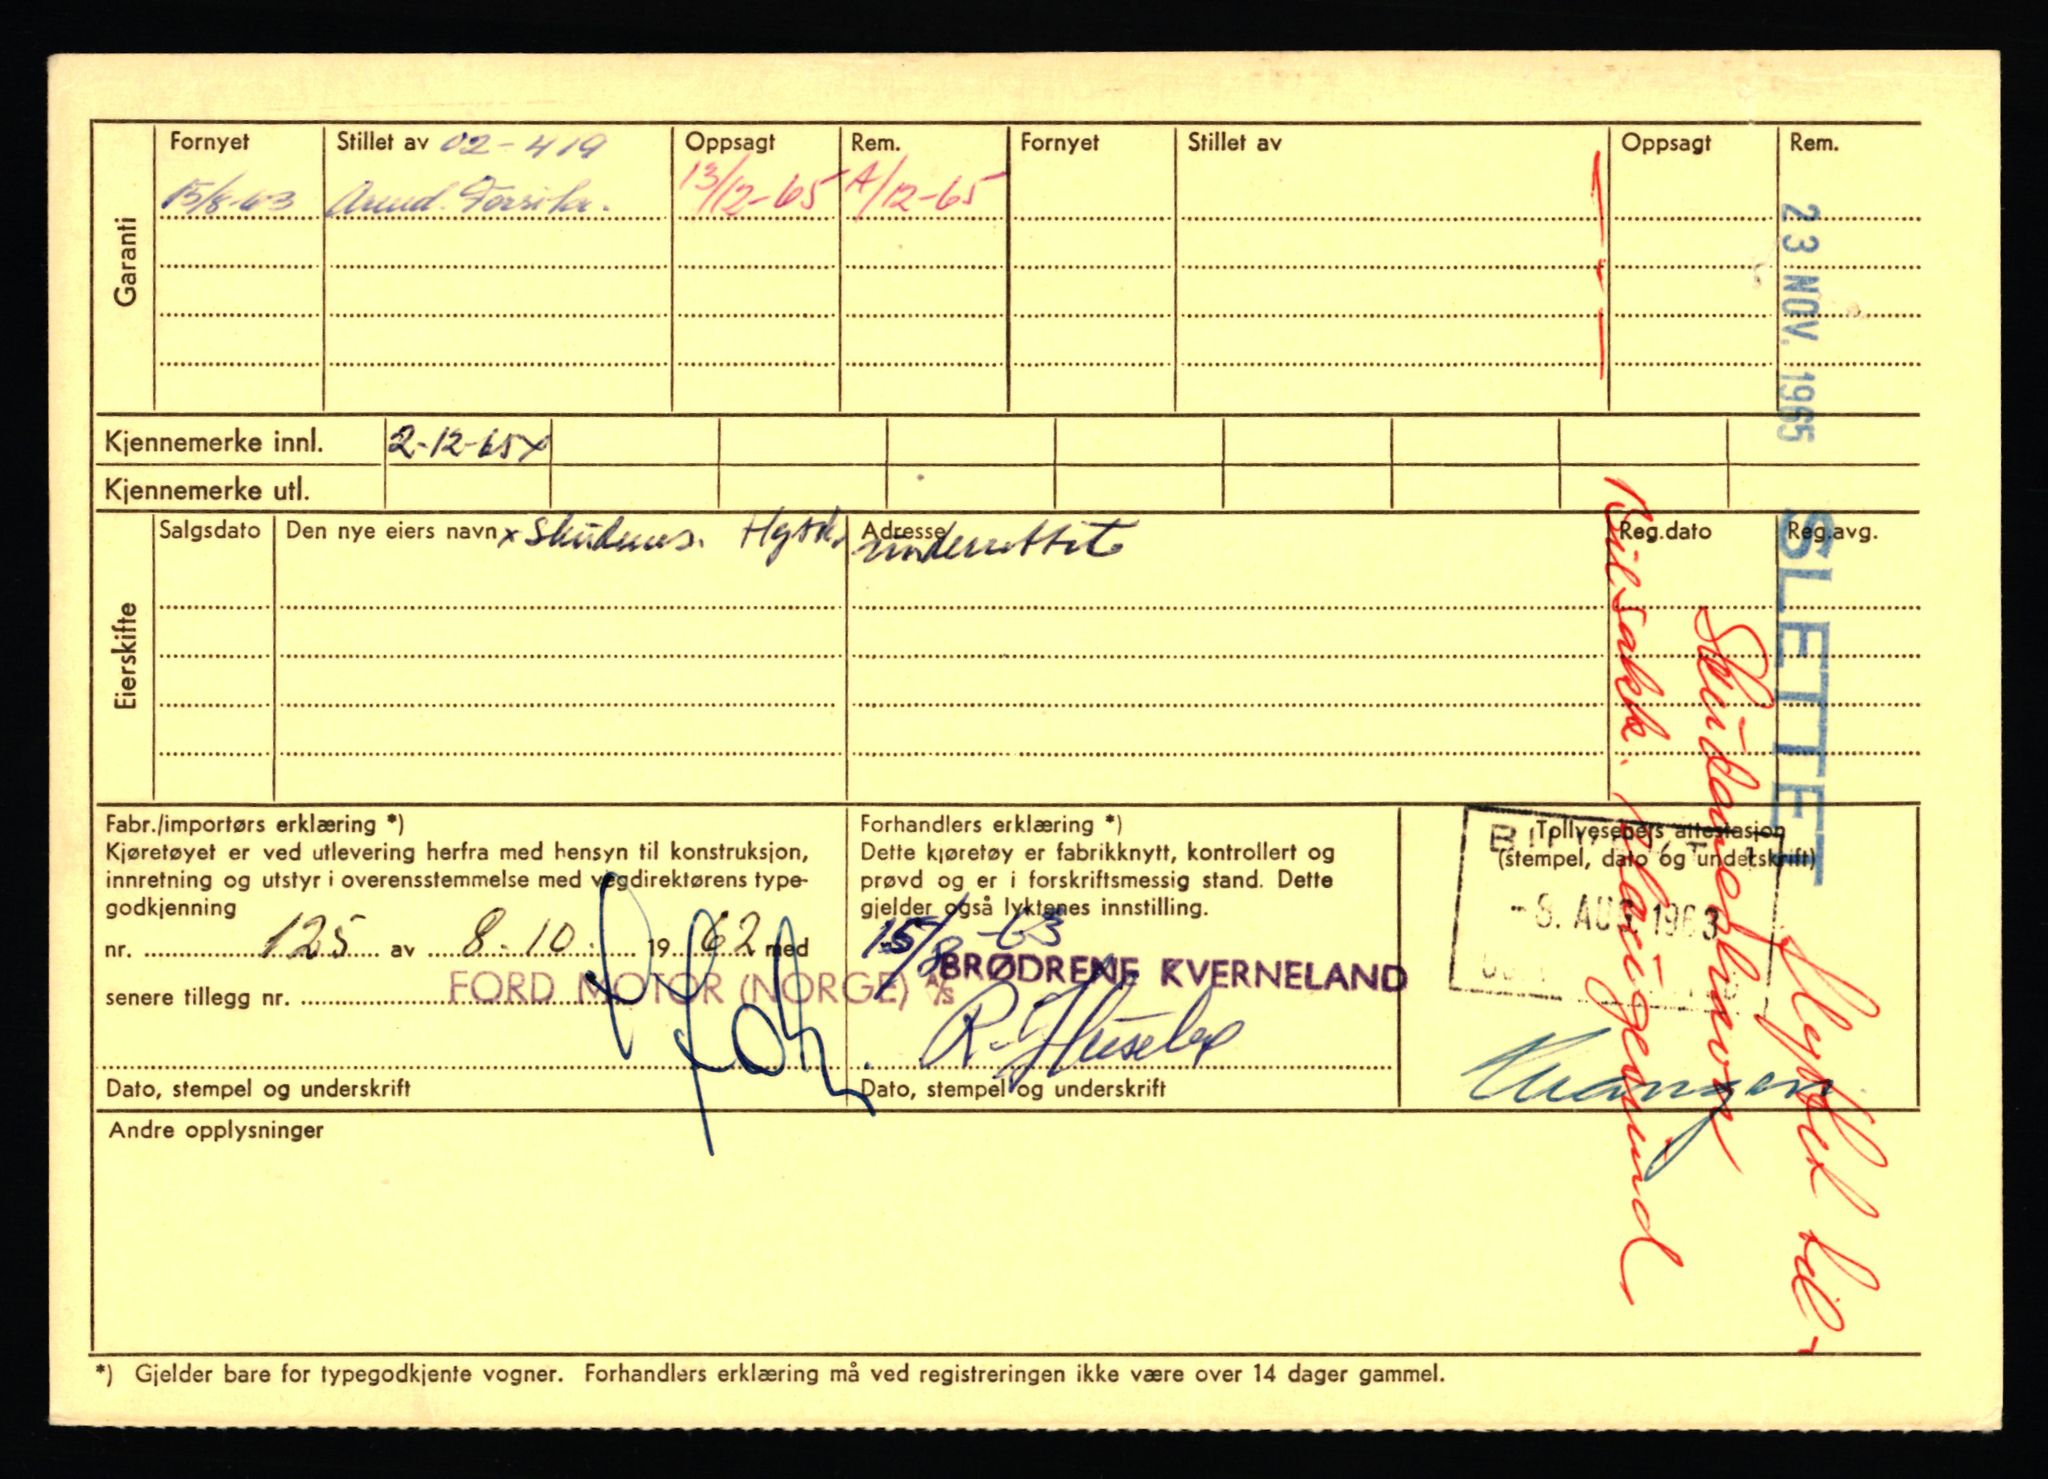 Garanti
Fornyet
Stillet av 02-419
Oppsagt
Rem.
Fornyet
Stillet av
Oppsagt
Rem.
15/8-63
13/12-65
A/12-65
23 NOV. 1965
Kjennemerke innl.
2-12-65x
Kjennemerke utl.
Eierskifte
Salgsdato
Den nye eiers navn x Skudenes.
Adresse underrettet
Reg.dato
Reg.avg.
SLETTET
Fabr./importørs erklæring *)
Kjøretøyet er ved utlevering herfra med hensyn til konstruksjon,
innretning og utstyr i overensstemmelse med vegdirektørens type-
godkjenning
nr. 125 av 8.10. 1962 med
senere tillegg nr.
FORD MOTOR (NORGE) A/S
Dato, stempel og underskrift
Forhandlers erklæring *)
Dette kjøretøy er fabrikknytt, kontrollert og
prøvd og er i forskriftsmessig stand. Dette
gjelder også lyktenes innstilling.
15/8-63
BRØDRENE KVERNELAND
R. Huseby
Dato, stempel og underskrift
Tollvesenets attestasjon
(stempel, dato og underskrift)
AUG 1963
Slepet til
Skudeneshavn
Bilsakk.
Andre opplysninger
*) Gjelder bare for typegodkjente vogner. Forhandlers erklæring må ved registreringen ikke være over 14 dager gammel.